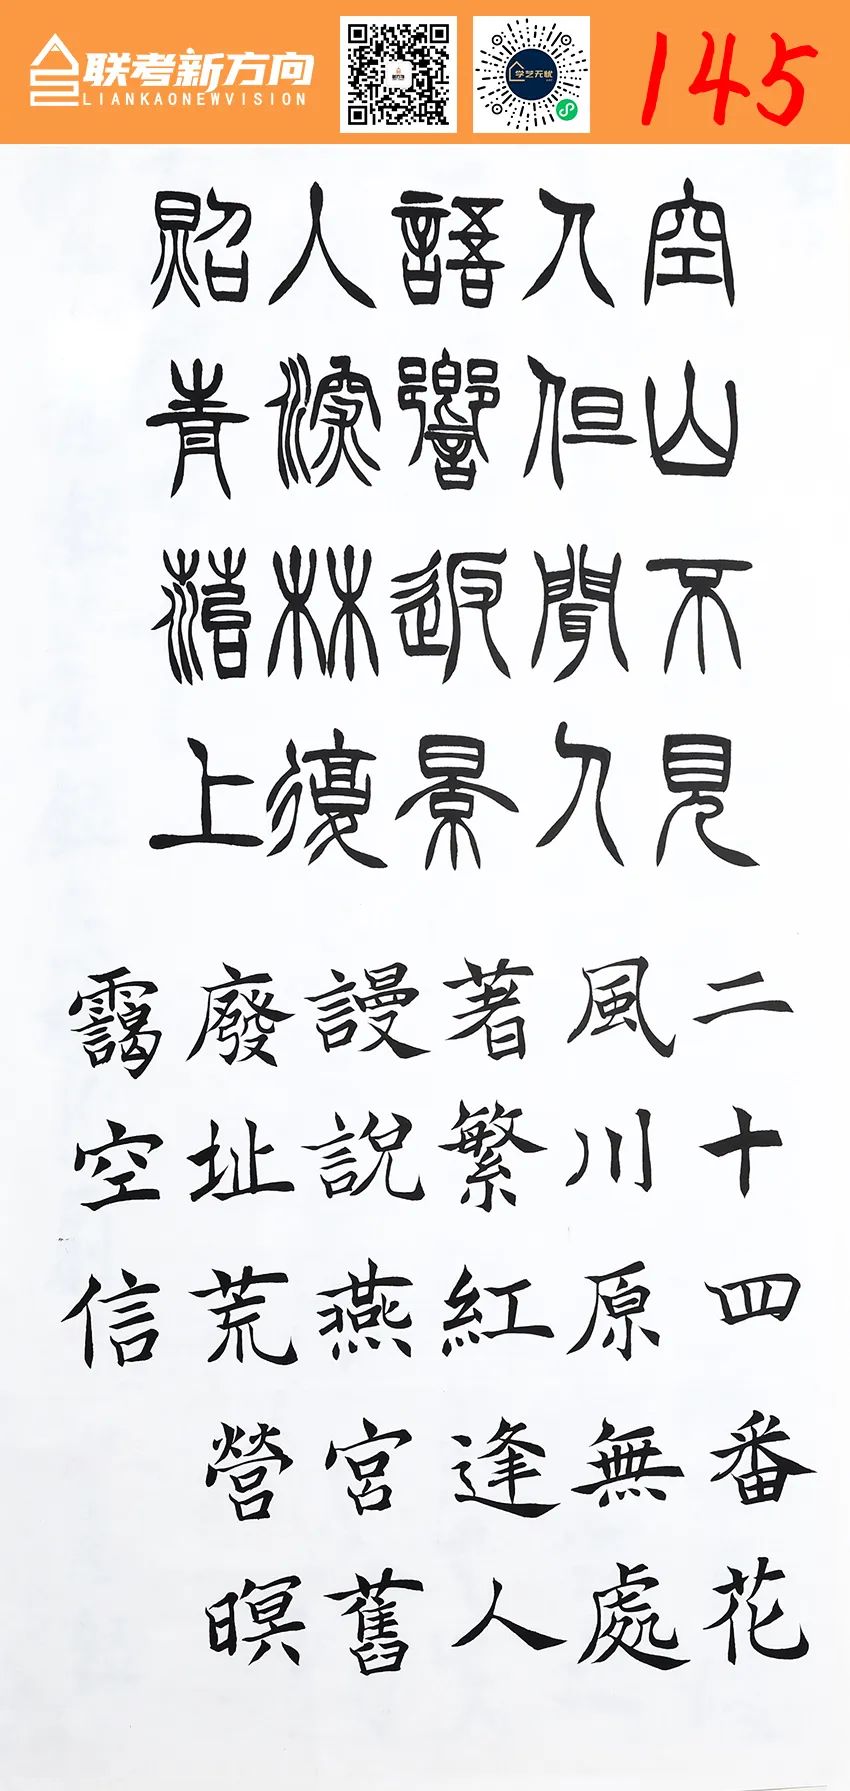 联考新方向
LIANKAONEWVISION
学艺无忧
145
空山不見
人但聞人
語響返景
入深林復
照青菭上
二十四番花
風川原無處
著繁紅逢人
謾說燕宮舊
廢址荒營暝
靄空信